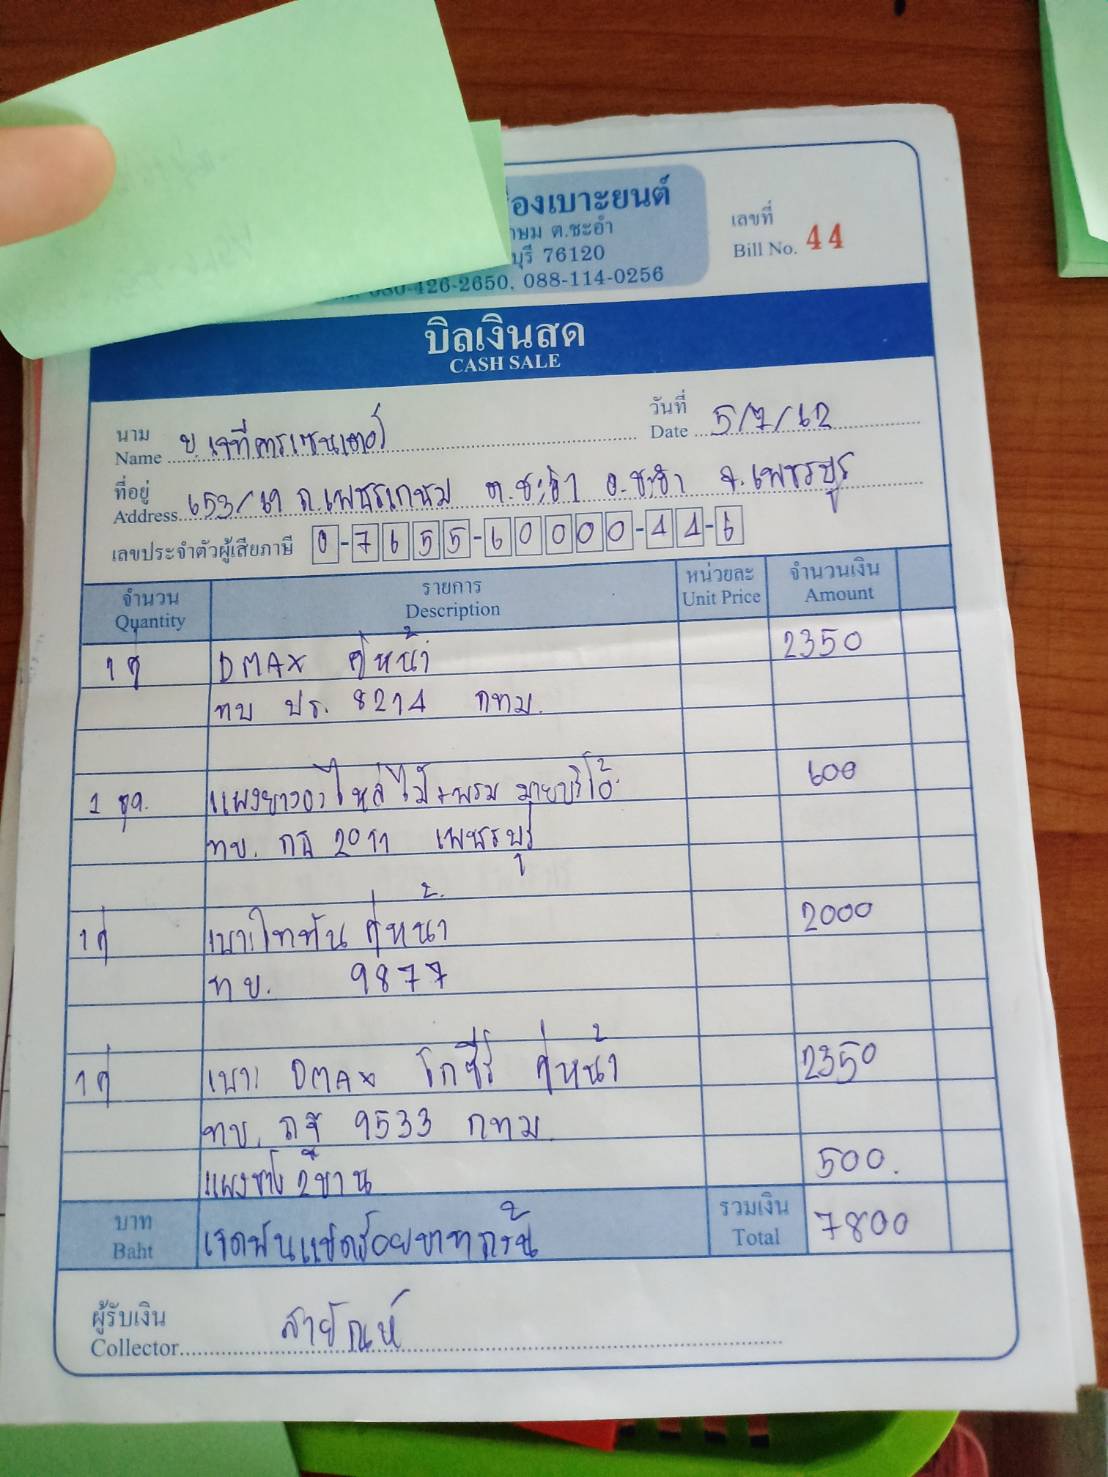 องเบาะยนต์
ษม ต.ชะอำ
บุรี 76120
080-426-2650, 088-114-0256
เลขที่
Bill No. 44
บิลเงินสด
CASH SALE
นาม
Name บ.เจทีคาร์เซนเตอร์
วันที่
Date 5/7/62
ที่อยู่
Address 653/69 ถ.เพชรเกษม ต.ชะอำ อ.ชะอำ จ.เพชรบุรี
เลขประจำตัวผู้เสียภาษี 0-7655-60000-44-6
จำนวน รายการ หน่วยละ จำนวนเงิน
Quantity Description Unit Price Amount
1 คู่ DMAX คู่หน้า 2350
ทบ ปร. 8214 กทม.
1 ชุด. 600
ทบ. 2011 เพชรบุรี
1 คู่ เบาะไททัน คู่หน้า 2000
ทบ. 9877
1 คู่ เบาะ DMAX คู่หน้า 2350
ทบ. 9533 กทม
แผงข้าง 2 บาน 500.
บาท เจ็ดพันแปดร้อยบาทถ้วน รวมเงิน 7800
Baht Total
ผู้รับเงิน
Collector สายัณห์